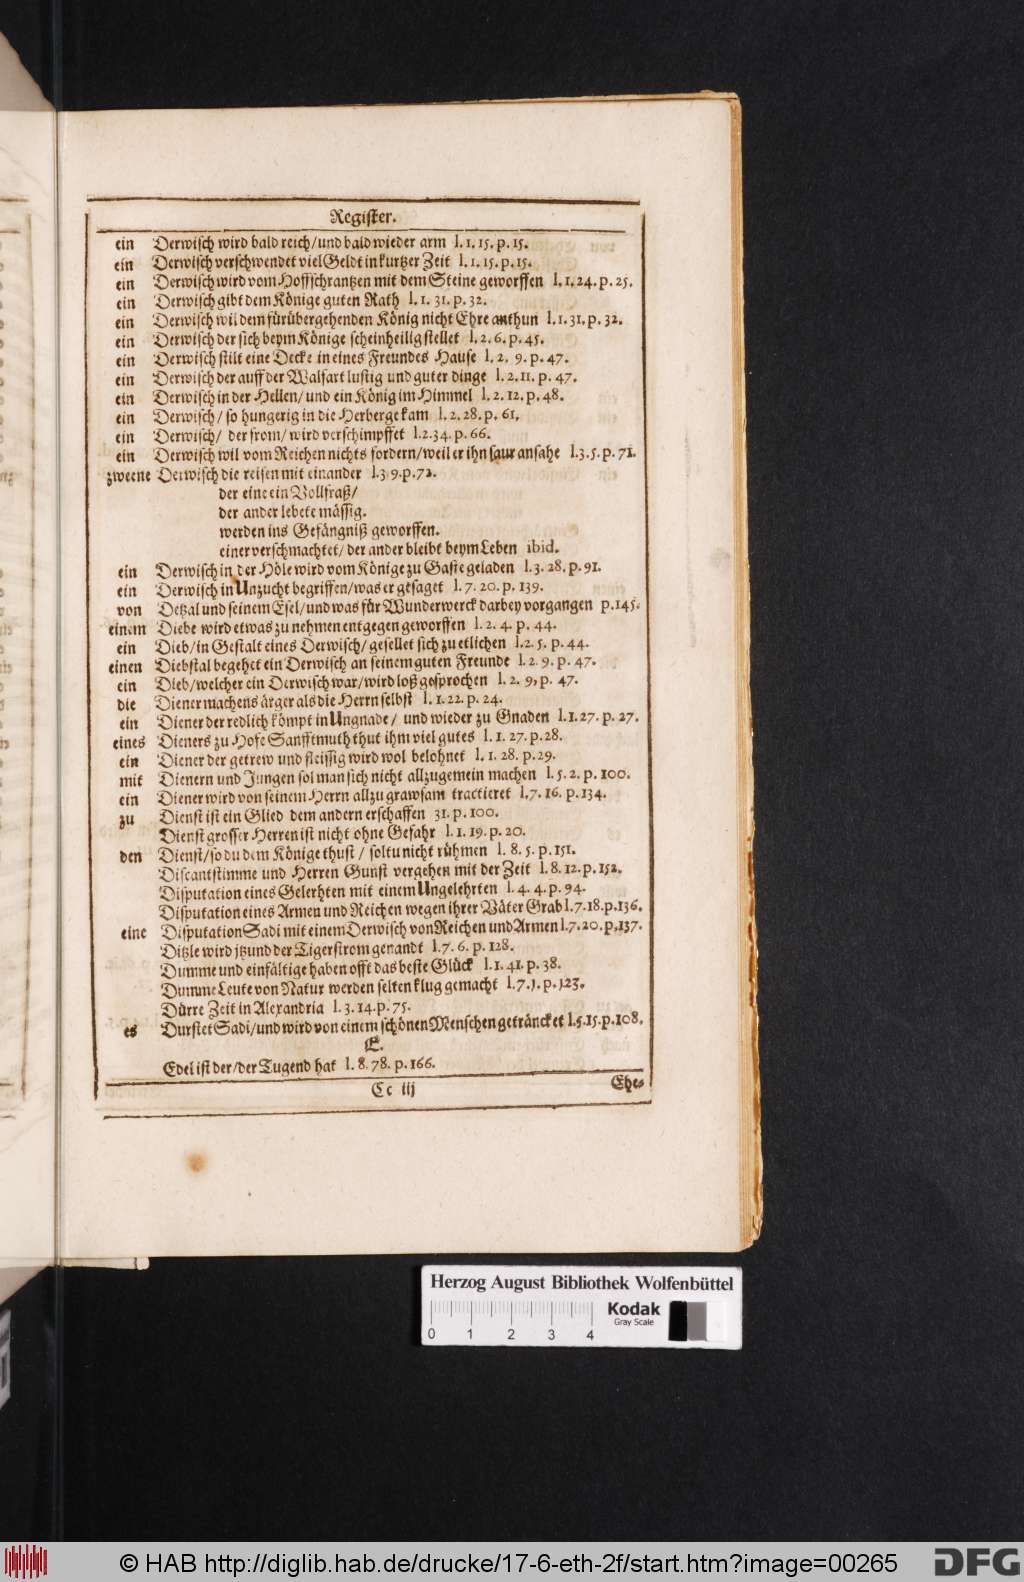 Register.
ein Derwisch wird bald reich/und bald wieder arm l. 1. 15. p. 15.
ein Derwisch verschwendet viel Geldt in kurtzer Zeit l. 1. 15. p. 15.
ein Derwisch wird vom Hoffschrantzen mit dem Steine geworffen l. 1. 24. p. 25.
ein Derwisch gibt dem Könige guten Rath l. 1. 31. p. 32.
ein Derwisch wil dem fürübergehenden König nicht Ehre anthun l. 1. 31. p. 32.
ein Derwisch der sich beym Könige scheinheilig stellet l. 2. 6. p. 45.
ein Derwisch stilt eine Decke in eines Freundes Hause l. 2. 9. p. 47.
ein Derwisch der auff der Walfart lustig und guter dinge l. 2. 11. p. 47.
ein Derwisch in der Hellen/ und ein König im Himmel l. 2. 12. p. 48.
ein Derwisch/ so hungerig in die Herberge kam l. 2. 28. p. 61.
ein Derwisch/ der from/ wird verschimpffet l. 2. 34. p. 66.
ein Derwisch wil vom Reichen nichts fordern/ weil er ihn saur ansahe l. 3. 5. p. 71.
zweene Derwisch die reisen mit einander l. 3. 9. p. 72.
der eine ein Vollfraß/
der ander lebete mässig.
werden ins Gefängniß geworffen.
einer verschmachtet/ der ander bleibt beym Leben ibid.
ein Derwisch in der Höle wird vom Könige zu Gaste geladen l. 3. 28. p. 91.
ein Derwisch in Unzucht begriffen/was er gesaget l. 7. 20. p. 139.
von Detzal und seinem Esel/und was für Wunderwerck darbey vorgangen p. 145.
einem Diebe wird etwas zu nehmen entgegen geworffen l. 2. 4. p. 44.
ein Dieb/in Gestalt eines Derwisch/ gesellet sich zu etlichen l. 2. 5. p. 44.
einen Diebstal begehet ein Derwisch an seinem guten Freunde l. 2. 9. p. 47.
ein Dieb/welcher ein Derwisch war/wird loß gesprochen l. 2. 9, p. 47.
die Diener machens ärger als die Herrn selbst l. 1. 22. p. 24.
ein Diener der redlich kömpt in Ungnade/ und wieder zu Gnaden l. 1. 27. p. 27.
eines Dieners zu Hofe Sanfftmuth thut ihm viel gutes l. 1. 27. p. 28.
ein Diener der getrew und fleissig wird wol belohnet l. 1. 28. p. 29.
mit Dienern und Jungen sol man sich nicht allzugemein machen l. 5. 2. p. 100.
ein Diener wird von seinem Herrn allzu grawsam tractieret l. 7. 16. p. 134.
zu Dienst ist ein Glied dem andern erschaffen 31. p. 100.
Dienst grosser Herren ist nicht ohne Gefahr l. 1. 19. p. 20.
den Dienst/so du dem Könige thust / soltu nicht rühmen l. 8. 5. p. 151.
Discantstimme und Herren Gunst vergehen mit der Zeit l. 8. 12. p. 152.
Disputation eines Gelerhten mit einem Ungelehrten l. 4. 4. p. 94.
Disputation eines Armen und Reichen wegen ihrer Väter Grab l. 7. 18. p. 136.
eine Disputation Sadi mit einem Derwisch von Reichen und Armen l. 7. 20. p. 137.
Ditzle wird itzund der Tigerstrom genandt l. 7. 6. p. 128.
Dumme und einfältige haben offt das beste Glück l. 1. 41. p. 38.
Dumme Leute von Natur werden selten klug gemacht l. 7. 1. p. 123.
Dürre Zeit in Alexandria l. 3. 14. p. 75.
es Durstet Sadi/und wird von einem schönen Menschen geträncket l. 5. 15. p. 108.
E.
Edel ist der/der Tugend hat l. 8. 78. p. 166.
Cc iij
Ehe-
Herzog August Bibliothek Wolfenbüttel
Kodak
Gray Scale
0 1 2 3 4
© HAB http://diglib.hab.de/drucke/17-6-eth-2f/start.htm?image=00265
DFG